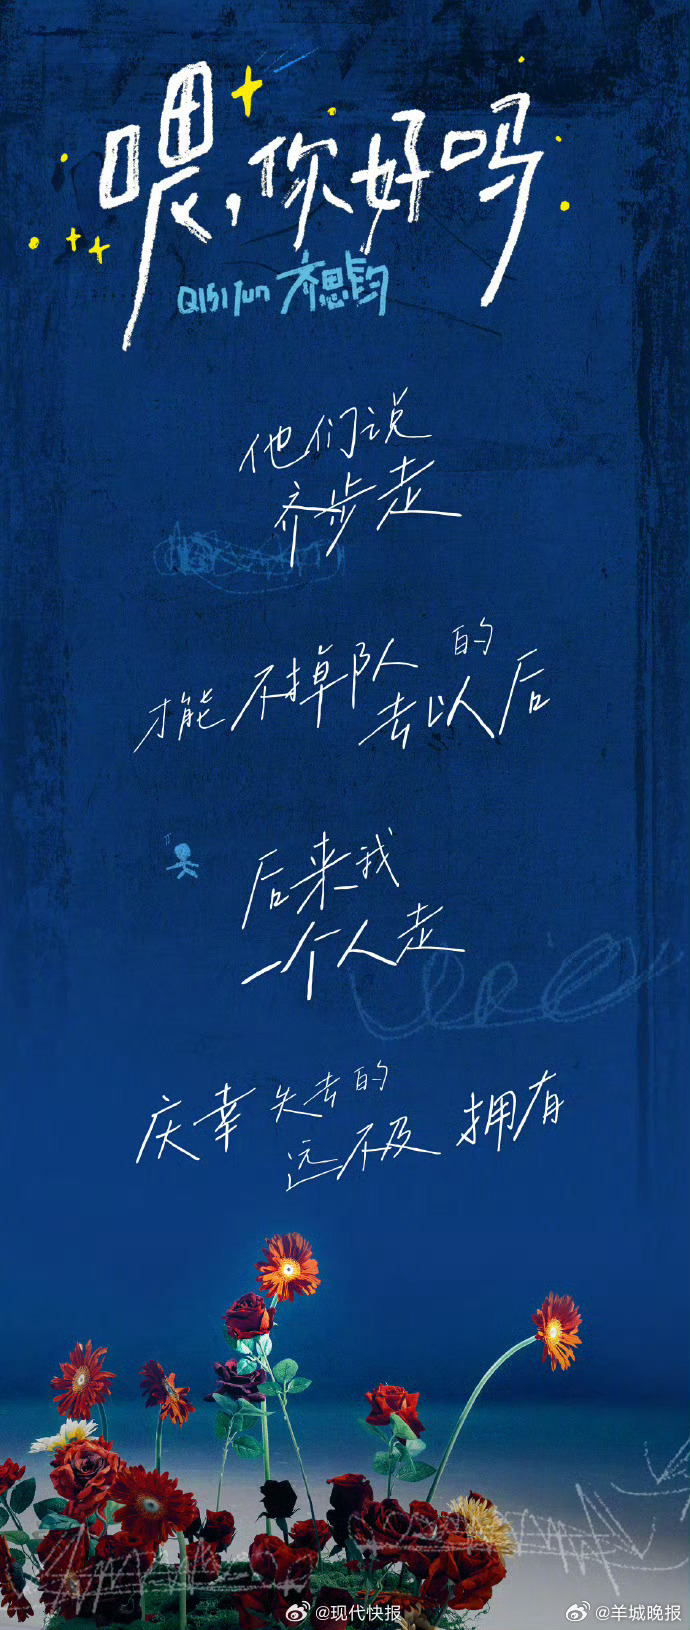 喂,你好吗
QISIJUN 齐思钧
他们说
齐步走
才能不掉队的
去以后
后来我
一个人走
庆幸失去的
远不及拥有
@现代快报
@羊城晚报